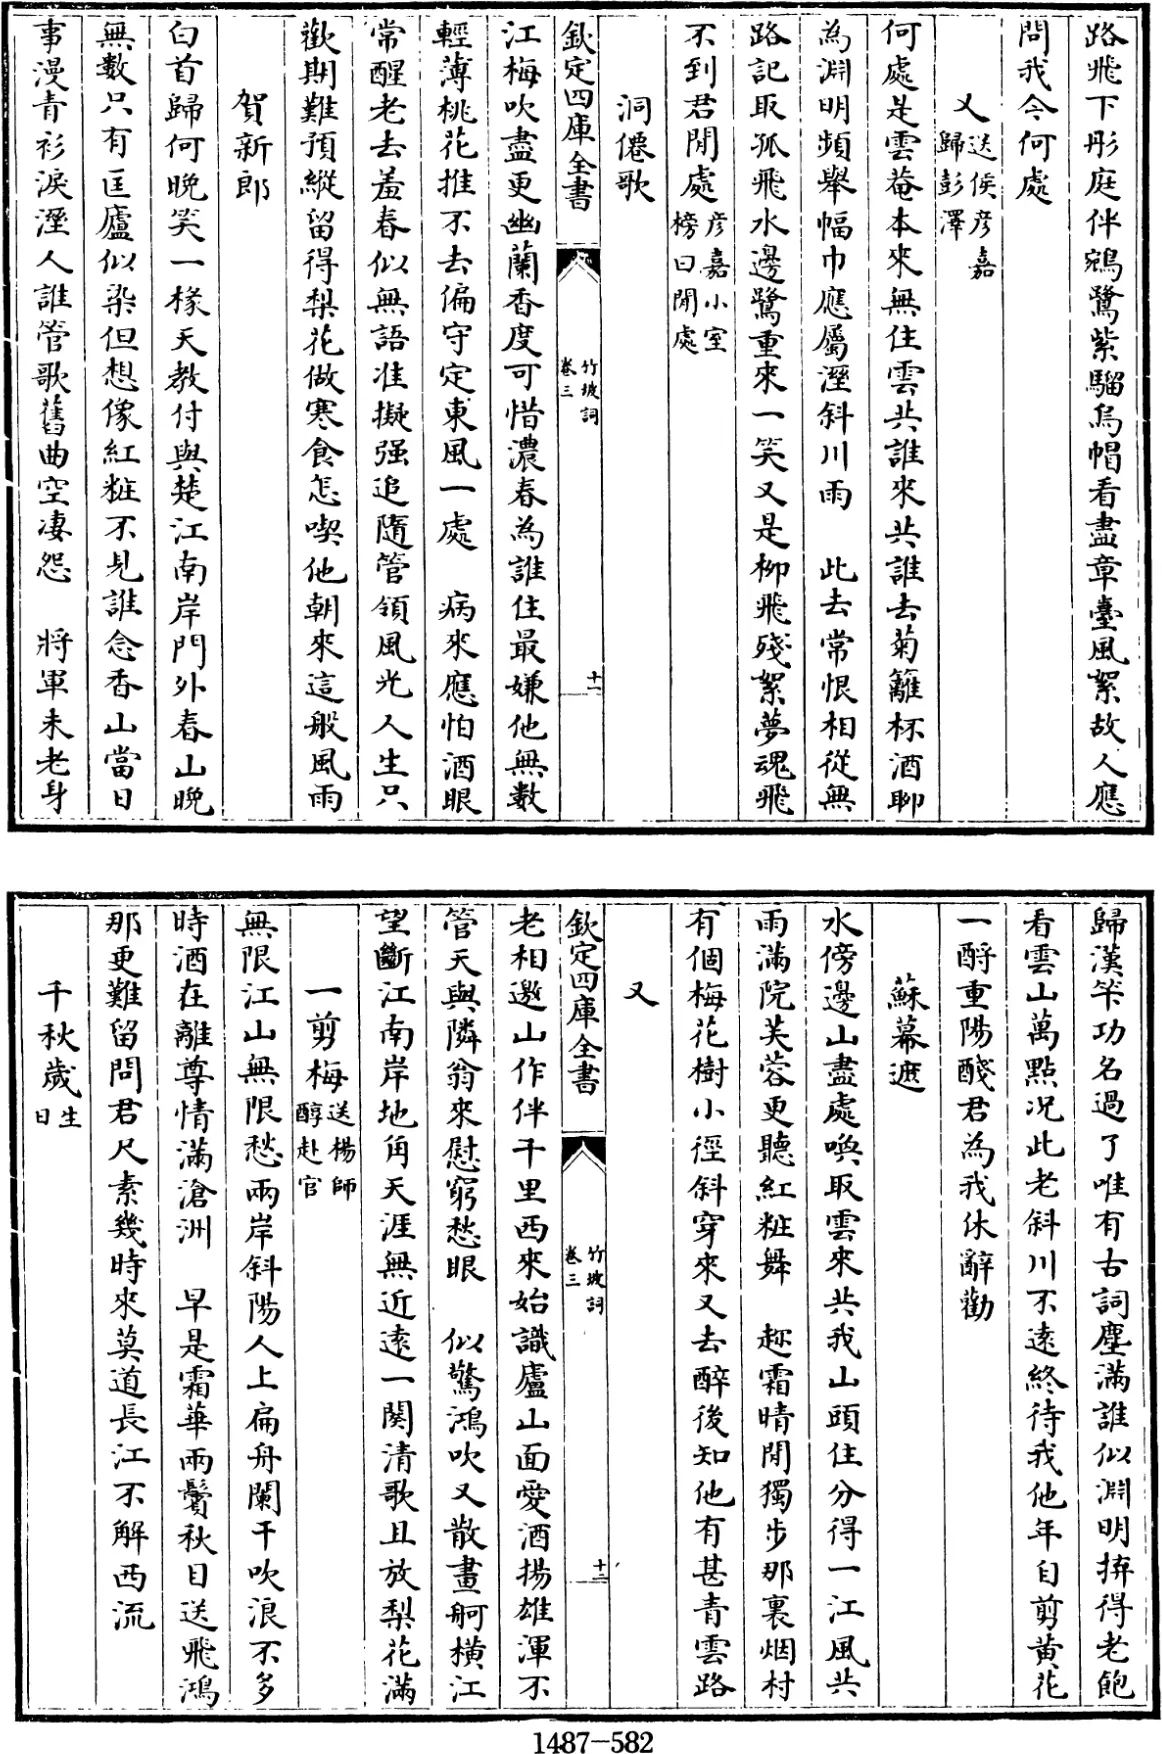 路飛下彤庭伴鵷鷺紫騮烏帽看盡章臺風絮故人應
問我今何處
又送侯彦嘉歸彭澤
何處是雲菴本來無住雲共誰來共誰去菊籬杯酒聊
為淵明頻舉幅巾應屬溼斜川雨　此去常恨相從無
路記取孤飛水邊鷺重來一笑又是柳飛殘絮夢魂飛
不到君閒處彦嘉小室榜曰閒處
洞僊歌
欽定四庫全書
竹坡詞
卷三
十一
江梅吹盡更幽蘭香度可惜濃春為誰住最嫌他無數
輕薄桃花推不去偏守定東風一處　病來應怕酒眼
常醒老去羞春似無語准擬强追隨管領風光人生只
歡期難預縱留得梨花做寒食怎喫他朝來這般風雨
賀新郎
白首歸何晚笑一椽天教付與楚江南岸門外春山晚
無數只有匡廬似染但想像紅粧不見誰念香山當日
事漫青衫淚溼人誰管歌舊曲空凄怨　將軍未老身
歸漢筭功名過了唯有古詞塵滿誰似淵明拚得老飽
看雲山萬點况此老斜川不遠終待我他年自剪黄花
一酹重陽醆君為我休辭勸
蘇幕遮
水傍邊山盡處喚取雲來共我山頭住分得一江風共
雨滿院芙蓉更聽紅粧舞　趂霜晴閒獨步那裏烟村
有個梅花樹小徑斜穿來又去醉後知他有甚青雲路
又
欽定四庫全書
竹坡詞
卷三
十二
老相邀山作伴千里西來始識廬山面愛酒揚雄渾不
管天與隣翁來慰窮愁眼　似驚鴻吹又散畫舸橫江
望斷江南岸地角天涯無近遠一闋清歌且放梨花滿
一剪梅送楊師醇赴官
無限江山無限愁兩岸斜陽人上扁舟闌干吹浪不多
時酒在離尊情滿滄洲　早是霜華兩鬢秋目送飛鴻
那更難留問君尺素幾時來莫道長江不解西流
千秋歲生日
1487-582